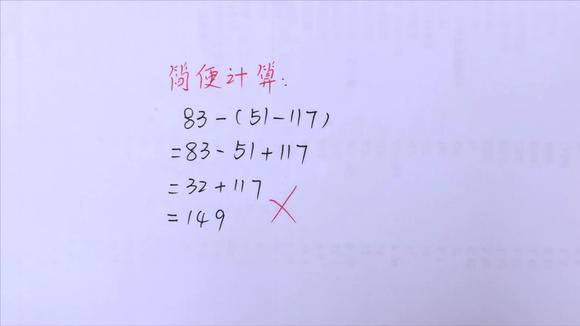 简便计算:
83-(51-117)
=83-51+117
=32+117
=149